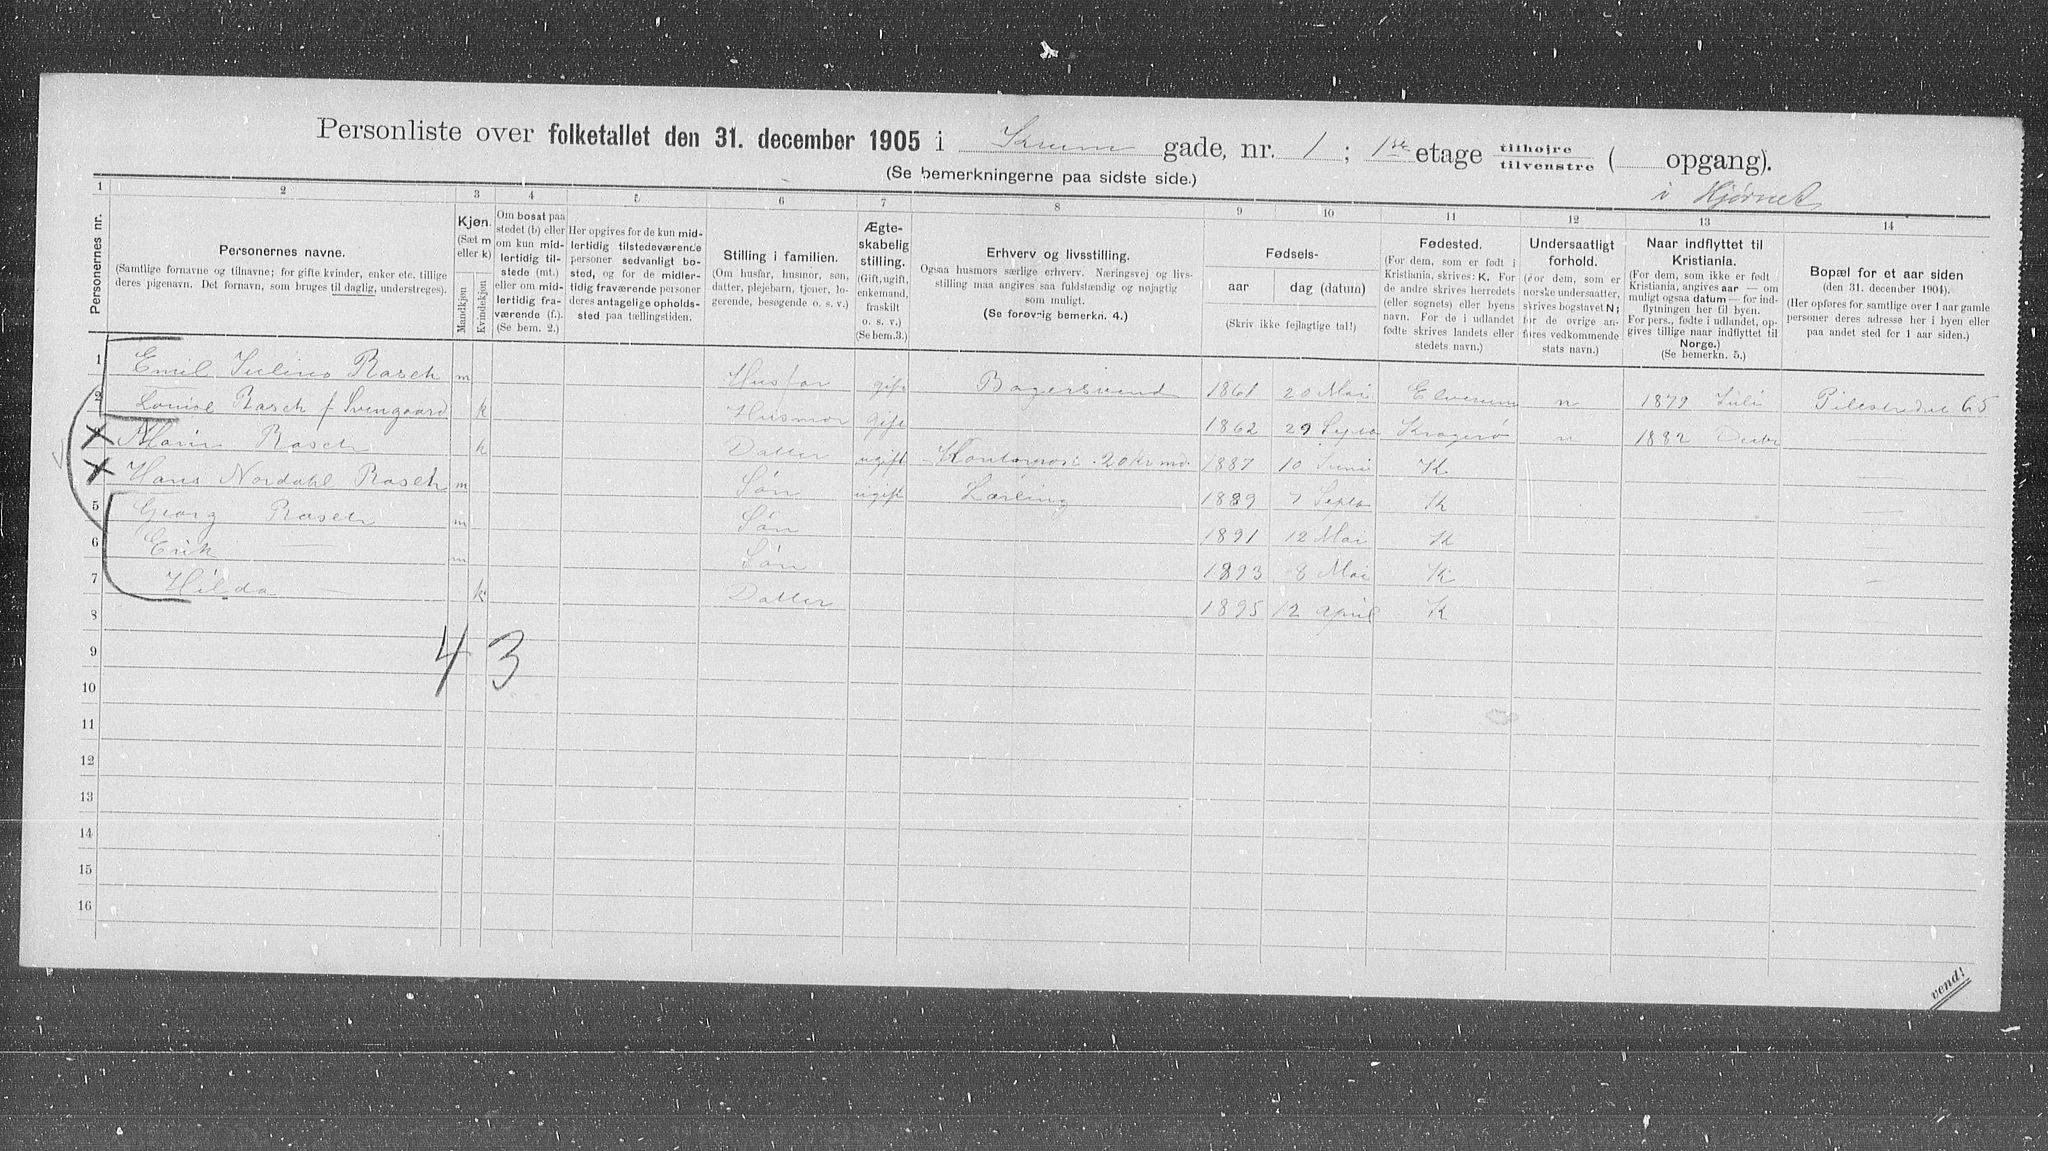 Personliste over folketallet den 31. december 1905 i Krum gade, nr. 1 ; 1ste etage tilhøjre tilvenstre ( opgang).
(Se bemerkningerne paa sidste side.)
i Hjørnet
1 2 3 4 5 6 7 8 9 10 11 12 13 14
Personernes nr.
Personernes navne.
(Samtlige fornavne og tilnavne; for gifte kvinder, enker etc. tillige
deres pigenavn. Det fornavn, som bruges til daglig, understreges).
Kjøn.
(Sæt m
eller k)
Mandkjøn
Kvindekjøn
Om bosat paa
stedet (b) eller
om kun mid-
lertidig til-
stede (mt.)
eller om mid-
lertidig fra-
værende (f.).
(Se bem. 2.)
Her opgives for de kun mid-
lertidig tilstedeværende
personer sedvanlig bo-
sted, og for de midler-
tidig fraværende personer
deres antagelige opholds-
sted paa tællingstiden.
Stilling i familien.
(Om husfar, husmor, søn,
datter, plejebarn, tjener, lo-
gerende, besøgende o. s. v.)
Ægte-
skabelig
stilling.
(Gift, ugift,
enkemand,
fraskilt
o. s. v.)
(Se bem. 3.)
Erhverv og livsstilling.
Ogsaa husmors særlige erhverv. Næringsvej og livs-
stilling maa angives saa fuldstændig og nøjagtig
som muligt.
(Se forøvrig bemerkn. 4.)
Fødsels-
aar
dag (datum)
(Skriv ikke fejlagtige tal!)
Fødested.
(For dem, som er født i
Kristiania, skrives: K. For
de andre skrives herredets
(eller sognets) eller byens
navn. For de i udlandet
fødte skrives landets eller
stedets navn.)
Undersaatligt
forhold.
(For dem, som er
norske undersaatter,
skrives bogstavet N;
for de øvrige an-
føres vedkommende
stats navn.)
Naar indflyttet til
Kristiania.
(For dem, som ikke er født i
Kristiania, angives aar — om
muligt ogsaa datum — for ind-
flytningen her til byen.
For pers., fødte i udlandet, op-
gives tillige naar indflyttet til
Norge.)
(Se bemerkn. 5.)
Bopæl for et aar siden
(den 31. december 1904).
(Her opføres for samtlige over 1 aar gamle
personer deres adresse her i byen eller
paa andet sted for 1 aar siden.)
1 Emil Julius Rasch m Husfar gift Bagersvend 1861 20 Mai Elverum n 1879 Juli Pilestrædet 65
2 Louise Rasch f Svengaard k Husmor gift 1862 29 Septb Kragerø n 1882 Decbr —
Marie Rasch k Datter ugift 20 kr md. 1887 10 Juni K —
Hans Nordahl Rasch m Søn ugift Lærling 1889 7 Septb K —
5 Georg Rasch m Søn 1891 12 Mai K —
6 Erik — m Søn 1893 8 Mai K —
7 Hilda — k Datter 1895 12 April K —
8
4 3
9
10
11
12
13
14
15
16
vend!